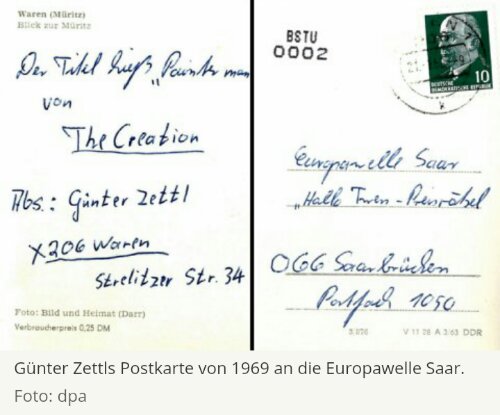 Waren (Müritz)
Blick zur Müritz
Der Titel hieß „Painter man
von
The Creation
Abs.: Günter Zettl
X206 Waren
Strelitzer Str. 34
Foto: Bild und Heimat (Darr)
Verbraucherpreis 0,25 DM
BSTU
0002
10
DEUTSCHE
DEMOKRATISCHE REPUBLIK
Europawelle Saar
„Hallo Twen-
066 Saarbrücken
Postfach 1050
V 11 28 A 3/63 DDR
Günter Zettls Postkarte von 1969 an die Europawelle Saar.
Foto: dpa